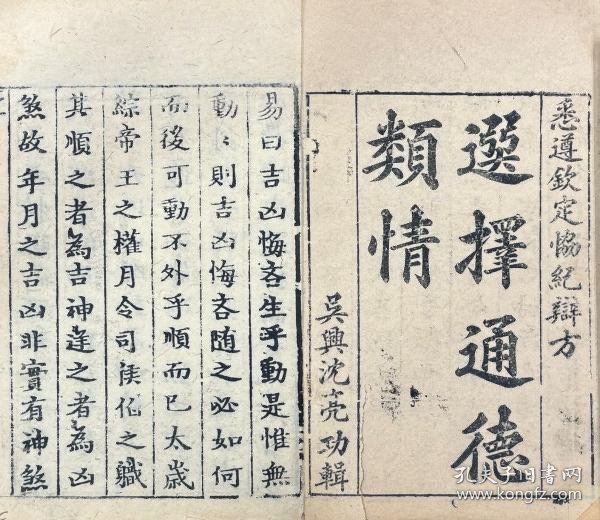 悉遵欽定協紀辯方
選擇通德
類情
吳興沈亮功輯
易曰吉凶悔吝生乎動是惟無
動〻則吉凶悔吝随之必如何
而後可動不外乎順而已太歲
綜帝王之權月令司侯伯之職
其順之者為吉神逆之者為凶
煞故年月之吉凶非實有神煞
孔夫子旧书网
www.kongfz.com